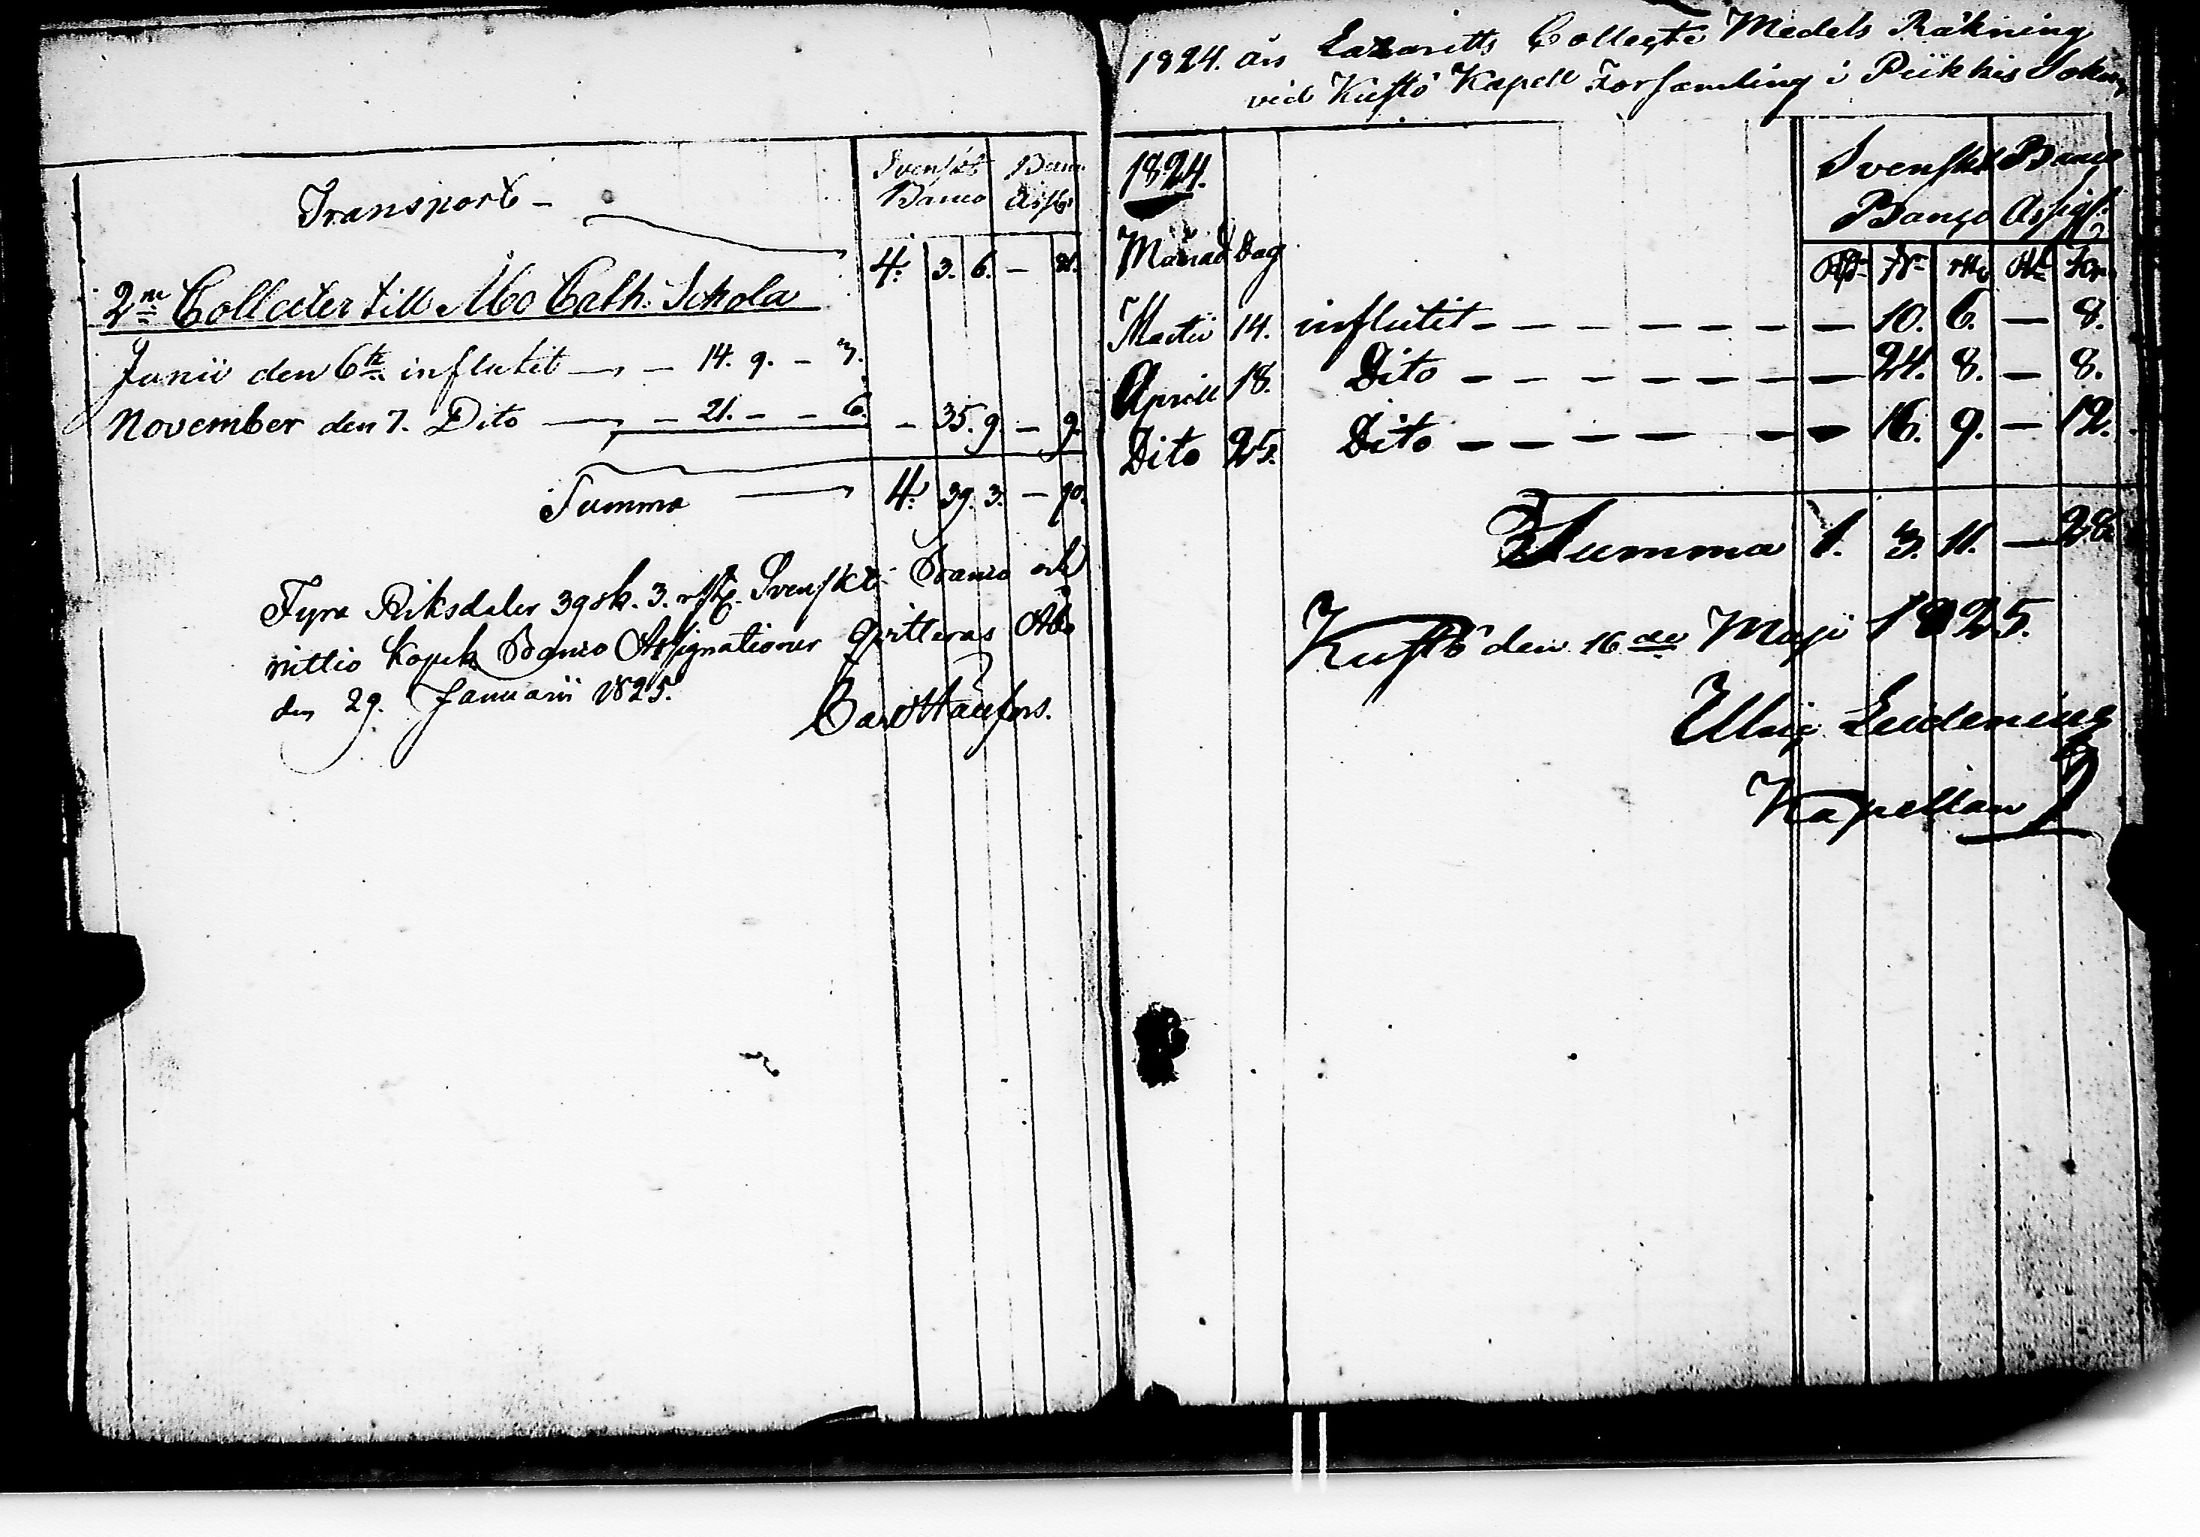 Svenskt Banco
Banco Assig:
Transport - 4. 3. 6. - 81.
2ne Collecter till Åbo Cath. Schola
Junii den 6te influtit - 14. 9. - 3.
November den 7. Dito - 21. - - 6. - 35. 9. - 9.
Summa 4. 39. 3. - 90.
Fyra Riksdaler 39 sk. 3. rst. Svenskt Banco och
nittio Kopek Banco Assignationer qvitteras Åbo
den 29. Januarii 1825.
1824. års Lazaretts Collecte Medels Räkning
vid Kustö Kapell Församling i Piikkis Sokn
1824. Svenskt Banco
Banco Assigt.
Månad Dag
Martii 14. influtit - - 10. 6. - 8.
Aprill 18. Dito - - 24. 8. - 8.
Dito 25. Dito - - 16. 9. - 12.
Summa 1. 3. 11. - 28.
Kustö den 16de Maji 1825.
Ulric
Kapellan